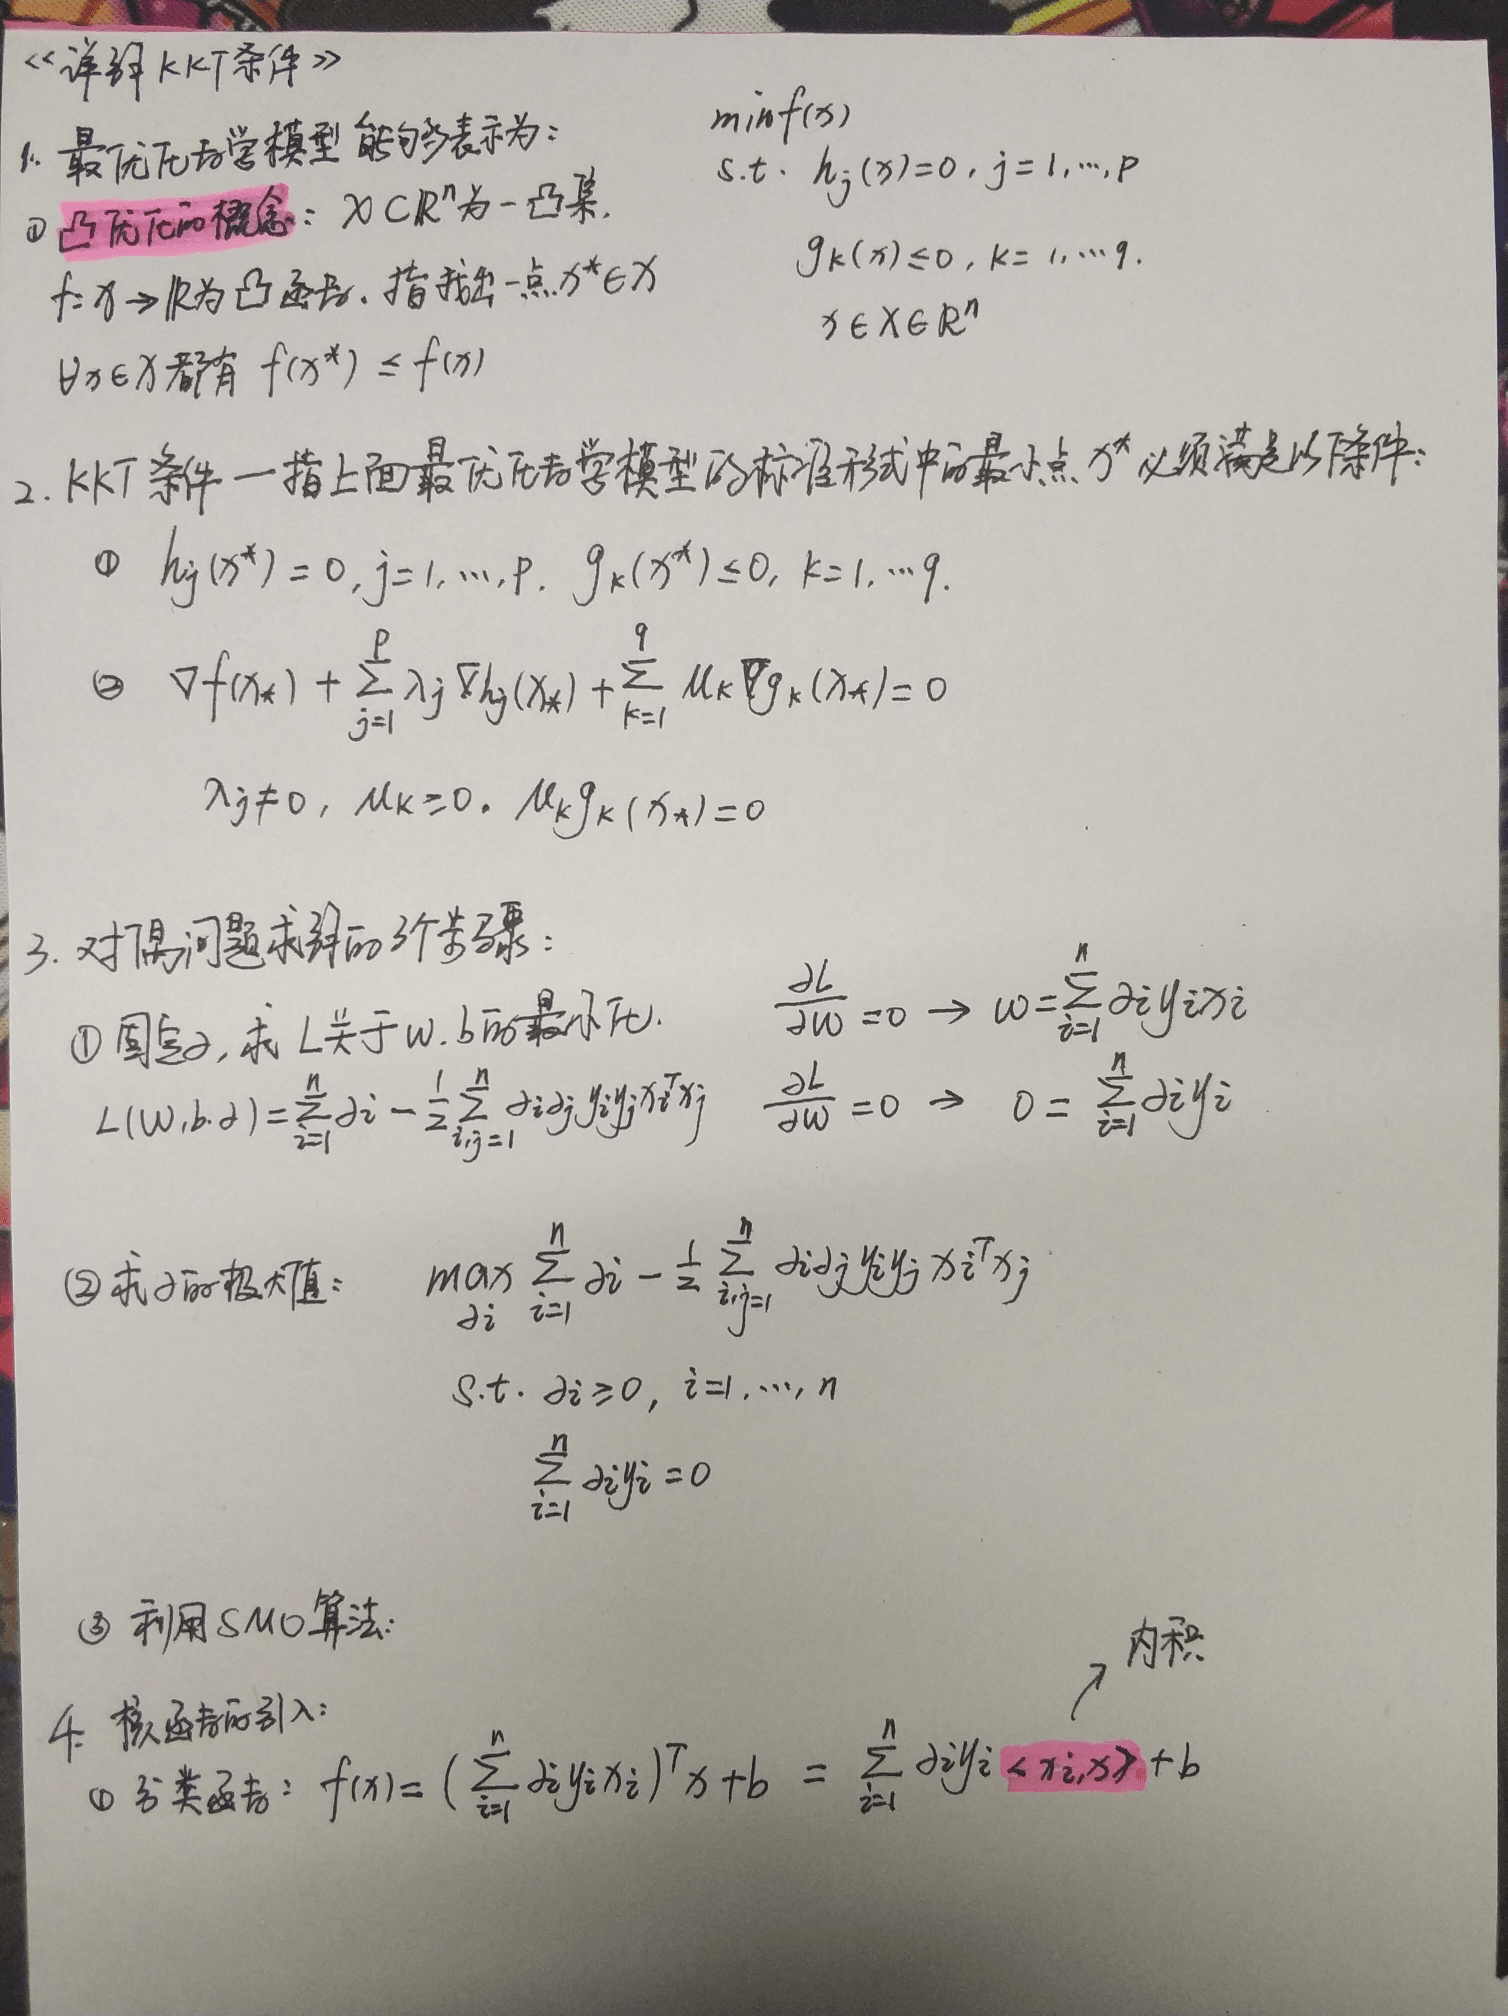 <<详解KKT条件>>
1. 最优化数学模型能够表示为:
min f(x)
s.t. hj(x)=0, j=1,…,p
gk(x)≤0, k=1,…q.
x∈X∈ℝⁿ
① 凸优化的概念: X⊂ℝⁿ为一凸集.
f:X→ℝ为凸函数.指找出一点x*∈X
∀x∈X都有 f(x*) ≤ f(x)
2. KKT条件一指上面最优化数学模型的标准形式中的最小点x*必须满足以下条件:
① hj(x*)=0, j=1,…,p. gk(x*)≤0, k=1,…q.
② ∇f(x*) + Σ_{j=1}^{p} λj∇hj(x*) + Σ_{k=1}^{q} μk∇gk(x*)=0
λj≠0, μk≥0. μkgk(x*)=0
3. 对偶问题求解的3个步骤:
① 固定∂, 求L关于w.b的最小化. ∂L/∂W=0 → w=Σ_{i=1}^{n} ∂iyixi
L(W,b.∂)=Σ_{i=1}^{n} ∂i - 1/2 Σ_{i,j=1}^{n} ∂i∂jyiyjxiᵀxj ∂L/∂W=0 → 0=Σ_{i=1}^{n} ∂iyi
② 求∂的极大值: max_{∂i} Σ_{i=1}^{n} ∂i - 1/2 Σ_{i,j=1}^{n} ∂i∂jyiyjxiᵀxj
s.t. ∂i≥0, i=1,…,n
Σ_{i=1}^{n} ∂iyi=0
③ 利用SMO算法:
内积
4. 核函数的引入:
① 分类函数: f(x)=(Σ_{i=1}^{n} ∂iyixi)ᵀx+b = Σ_{i=1}^{n} ∂iyi<xi,x>+b